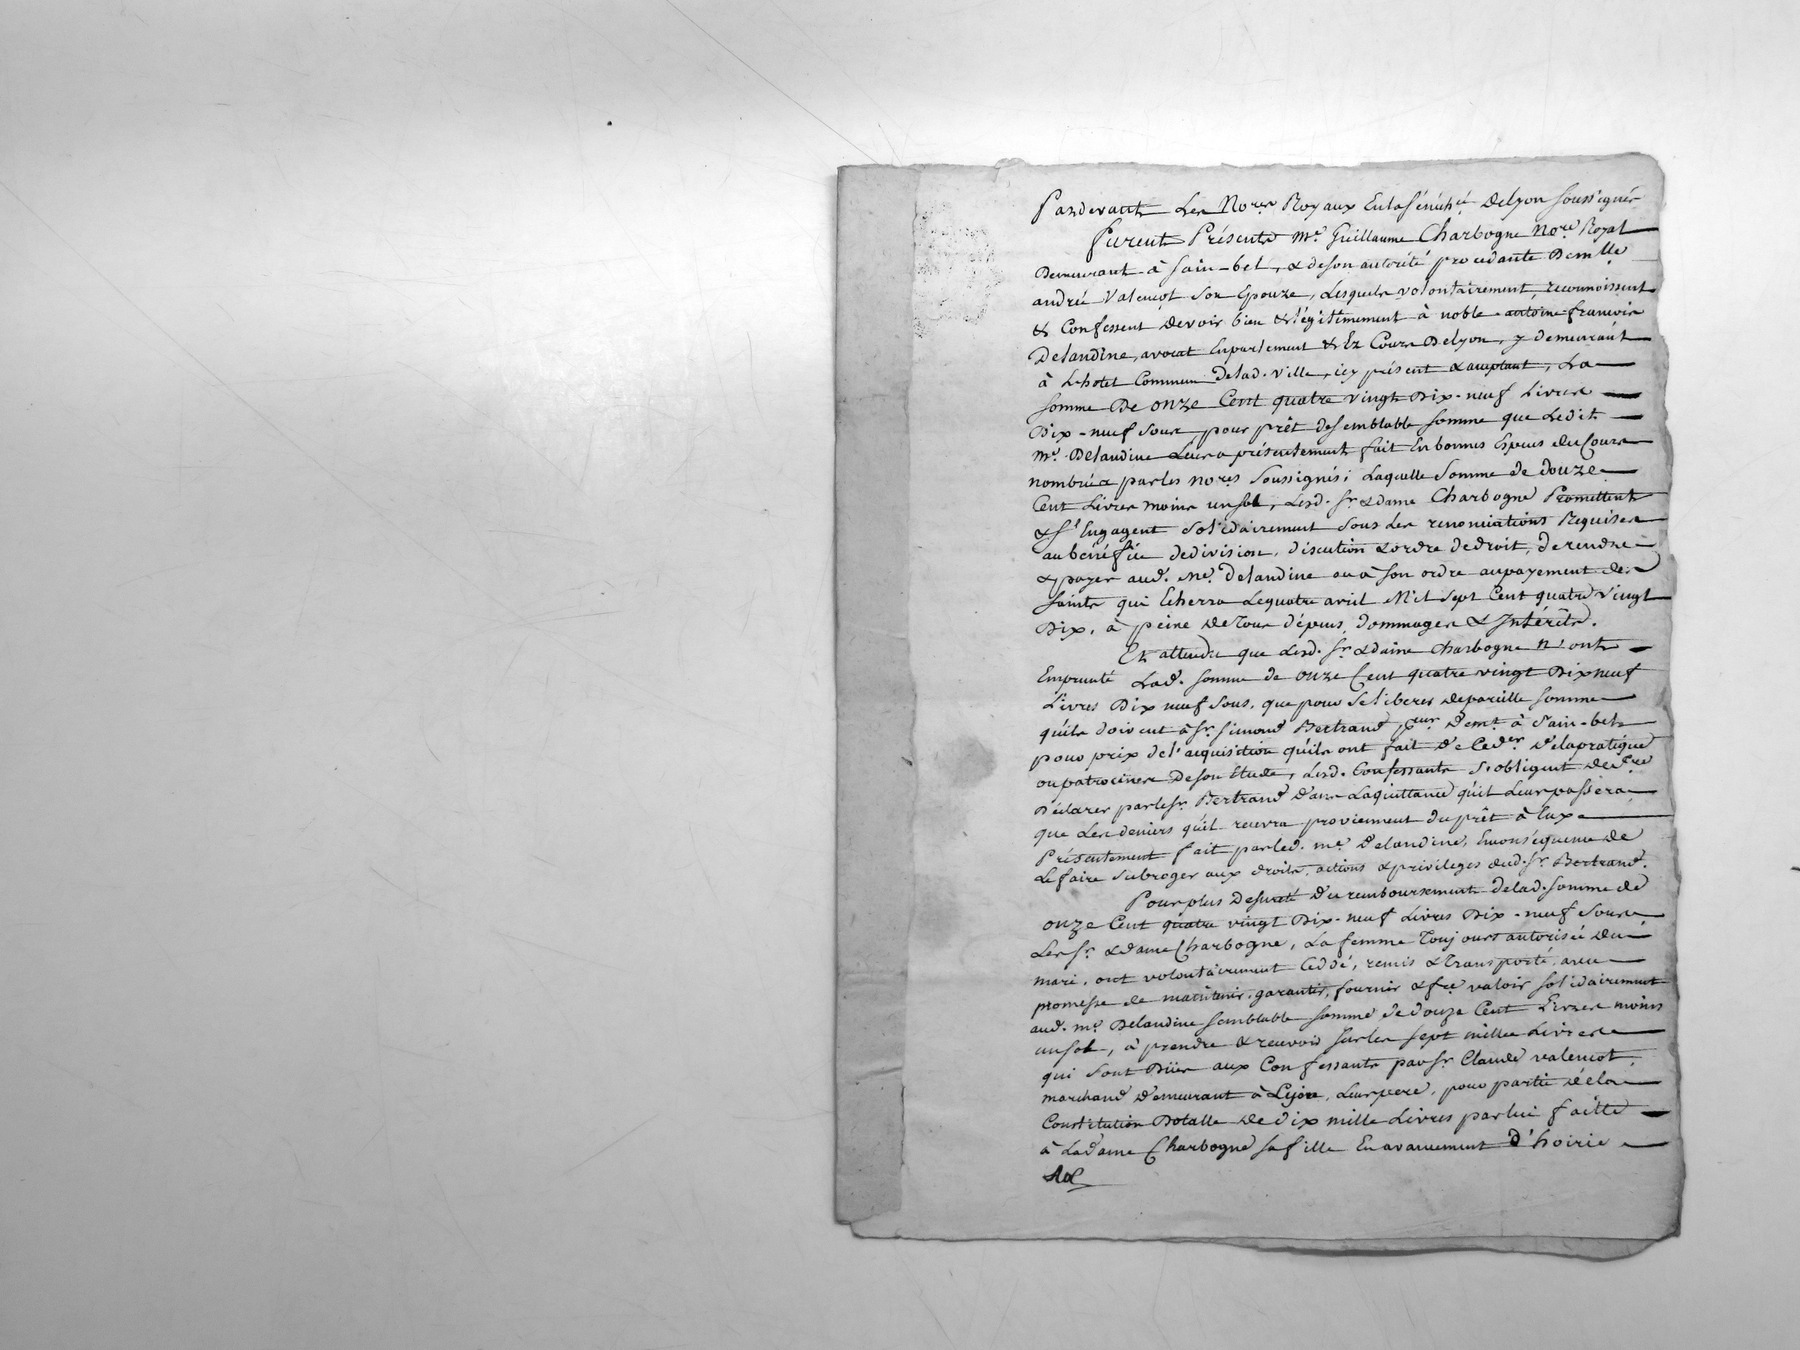 Pardevant Les No.res Royaux En la Sénéch.ée Delyon soussignés
furent Présents M.e Guillaume Charbogne No.re Royal
Demeurant à Sain-bel, & de son autorité procedante Dem.lle
andrée Valençot son Epouze, Lesquels volontairement, reconnoissent
& Confessent devoir bien & légitimement à noble antoine françois
Delandine, avocat En parlement & Ez Cours Delyon, y demeurant
à L'hotel Commun de lad. Ville, icy présent & acceptant, La
somme De onze Cent quatre vingt Dix-neuf Livres
Dix-neuf sous pour prêt de semblable somme que Ledit
M.e Delandine Leur a présentement fait En bonnes Espèces du Cours
nombrées par les no.res Soussignés; Laquelle Somme de douze
Cent Livres moins un sol, Lesd. S.r & dame Charbogne Promettent
& s'Engagent Solidairement sous Les renonciations Requises
au bénéfice de division, discution & ordre de droit, de rendre
& payer aud. M.e Delandine ou à son ordre au payement des
saints qui Echerra Le quatre avril Mil Sept Cent quatre Vingt
Dix, à peine de Tous dépens, dommages & Intérêts.
Et attendu que Lesd. S.r & dame Charbogne n'ont
Emprunté Lad. somme de onze Cent quatre vingt Dix neuf
Livres Dix neuf Sous, que pour se liberer de pareille somme
qu'ils doivent à S.r Simond Bertrand, dem.t à Sain-bel
pour prix de l'acquisition qu'ils ont fait de De la pratique
ou patrocines De son Etude, Lesd. Confessants S'obligent de f.re
Déclarer par le S.r Bertrand dans La quittance qu'il Leur passera
que Les deniers qu'il recevra proviennent du prêt à Eux
Présentement fait par led. m.e Delandine, En conséquence de
Le faire subroger aux droits, actions & privileges dud. S.r Bertrand.
Pour plus De sureté Du remboursement de lad. somme de
onze Cent quatre vingt Dix-neuf Livres Dix-neuf Sous
Les S.r & dame Charbogne, La femme Toujours autorisée du
mari, ont volontairement Ceddé, remis & transporté, avec
promesse de maintenir, garantir, fournir & f.re valoir solidairement
aud. m.e Delandine semblable somme de douze Cent Livres moins
un sol, à prendre & recevoir sur les sept mille Livres
qui sont Dües aux Confessants par S.r Claude valençot,
marchand demeurant à Lyon, Leur pere, pour partie de la
Constitution Dotalle de dix mille Livres par lui faitte
à La dame Charbogne sa fille En avancement d'hoirie